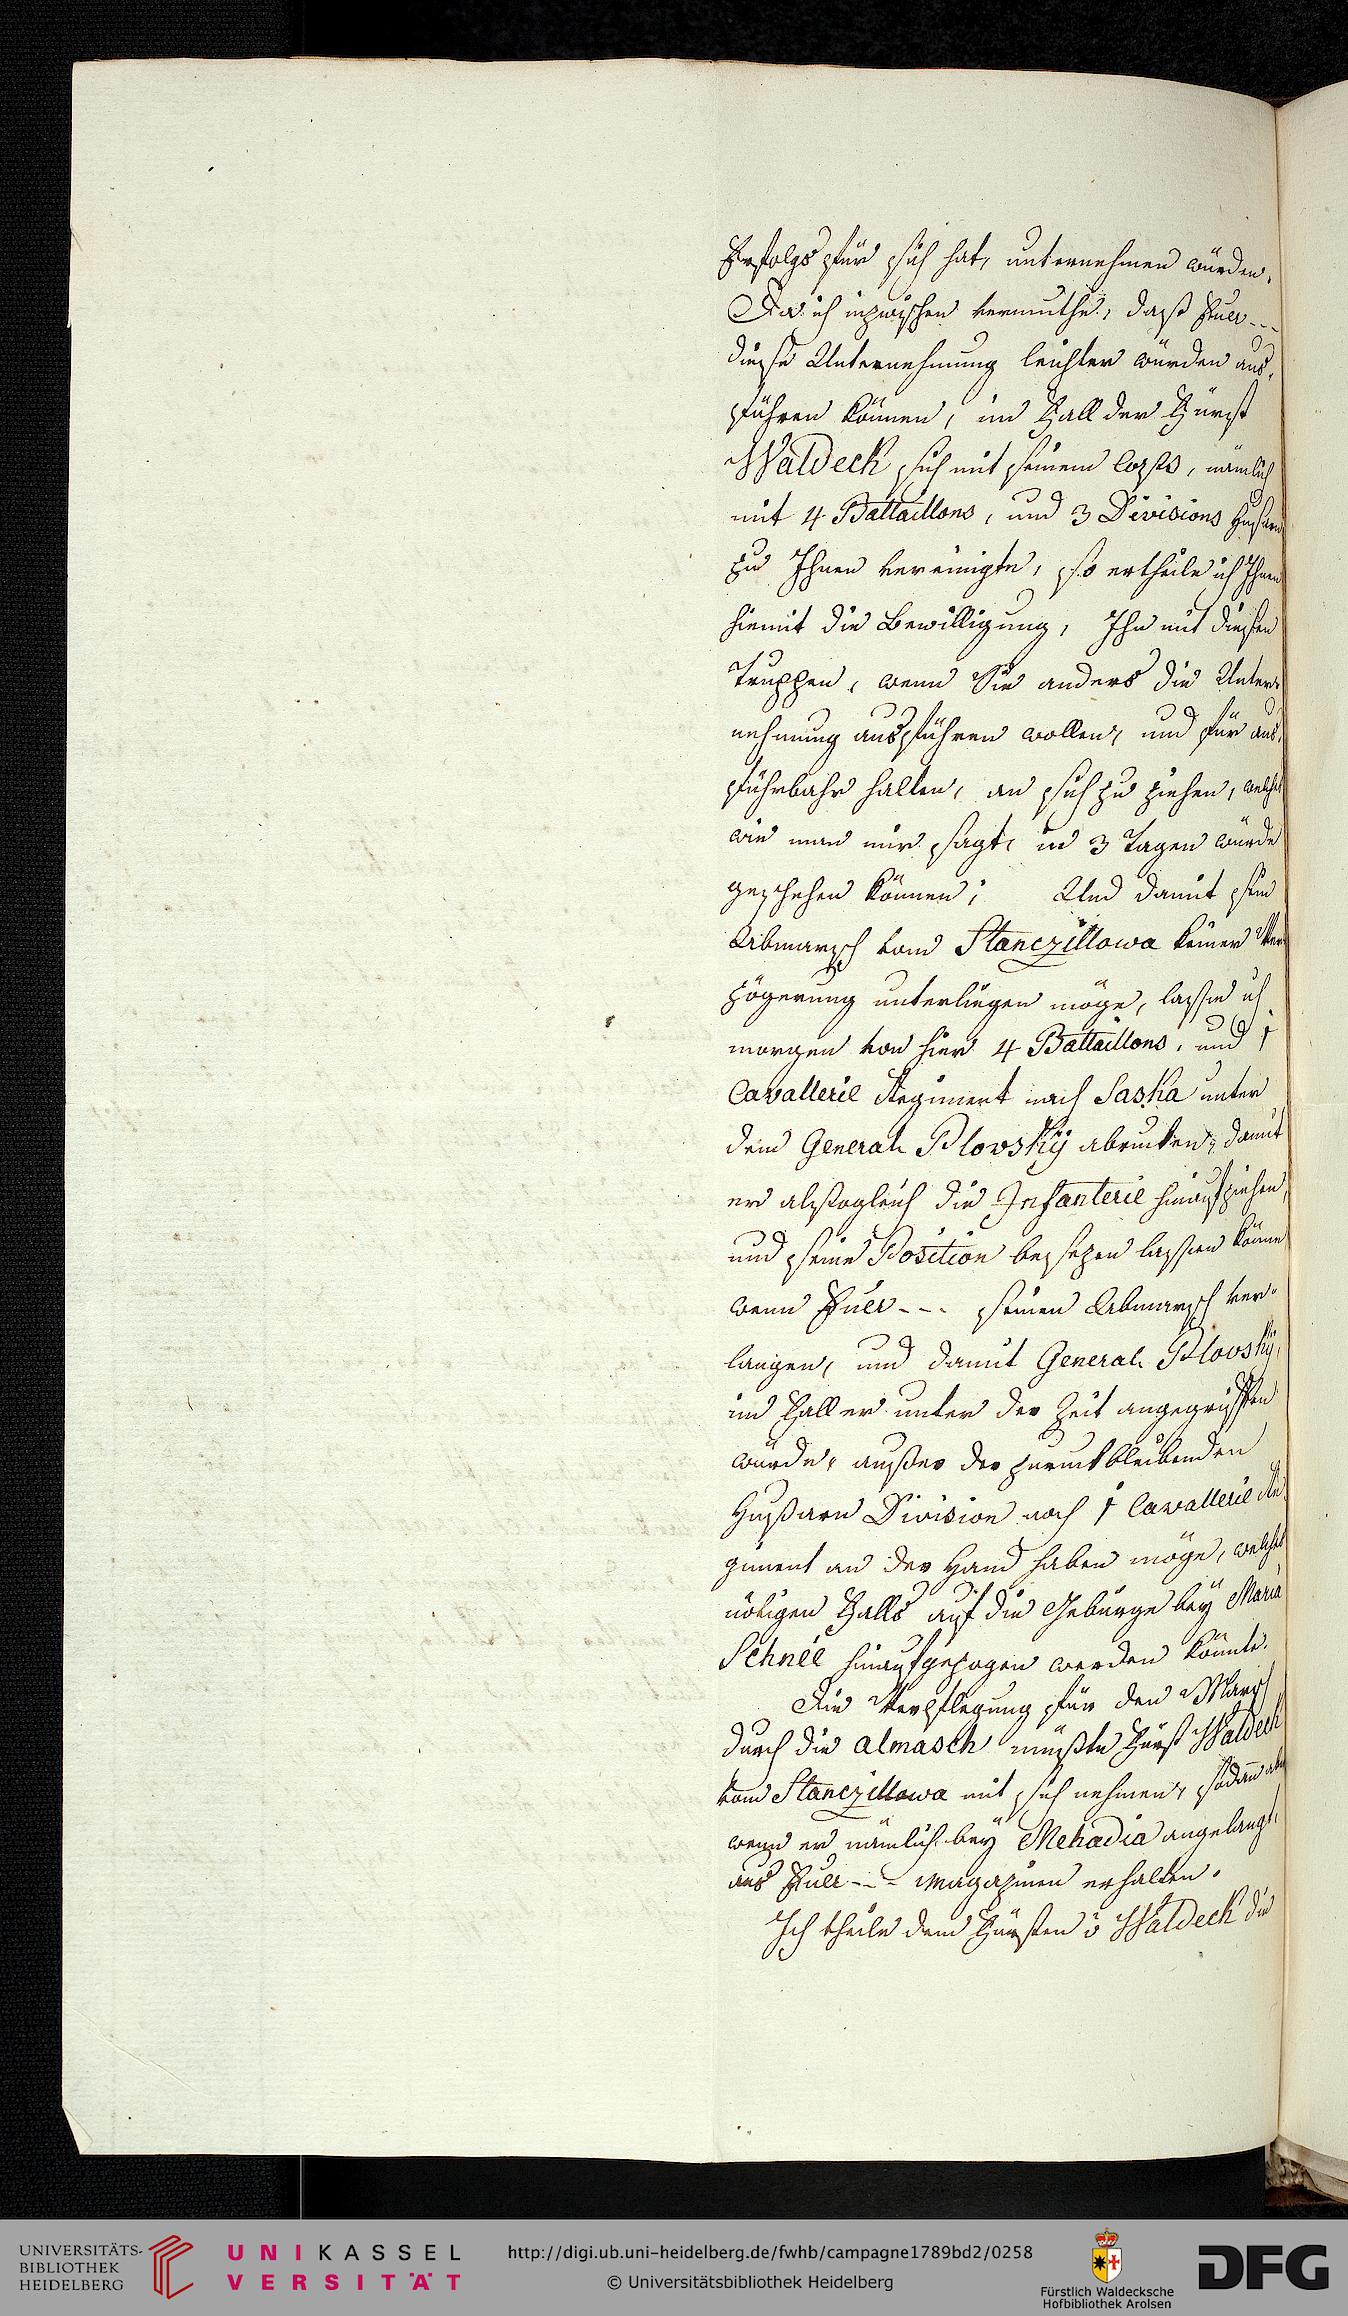 Erfolgs für sich hat, unternehmen würden.
Da ich inzwischen vermuthe, daß Euer---
diese Unternehmung leichter würden aus-
führen können, im Fall der Fürst
Waldeck sich mit seinem Corps, nämlich
mit 4 Battaillons, und 3 Divisions Husarn
zu Ihnen vereinigte, so ertheile ich Ihnen
hiemit die Bewilligung, Ihn mit diesen
Truppen, wenn Sie anders die Unter-
nehmung ausführen wollen, und für aus-
führbahr halten, an sich zu ziehen, welches
wie man mir sagt, in 3 Tagen würde
geschehen können; Und damit sein
Abmarsch vom Stanczillowa keiner Ver-
zögerung unterliegen möge, lasse ich
morgen von hier 4 Battaillons, und 1
Cavallerie Regiment nach Saska unter
dem General Blovskÿ abrucken, damit
er alsogleich die Infanterie hinaufziehen,
und seine Position besezen lassen könne
wenn Euer--- seinen Abmarsch ver-
langen, und damit General Blovskÿ,
im Fall er unter der Zeit angegriffen
würde, außer der zuruckbleibenden
Hußarn Division noch 1 Cavallerie Re-
giment an der Hand haben möge, welches
nötigen Falls auf die Gebürge beÿ Maria
Schnee hinaufgezogen werden könnte.
Die Verpflegung für den Marsch
durch die Almasch müßte Fürst Waldeck
vom Stanczillowa mit sich nehmen, sodann aber
wenn er nämlich beÿ Mehadia angelangt,
aus Euer--- Magazinen erhalten.
Ich theile dem Fürsten v Waldeck die
UNIVERSITÄTS-
BIBLIOTHEK
HEIDELBERG
UNIKASSEL
VERSITÄT
http://digi.ub.uni-heidelberg.de/fwhb/campagne1789bd2/0258
© Universitätsbibliothek Heidelberg
Fürstlich Waldecksche
Hofbibliothek Arolsen
DFG